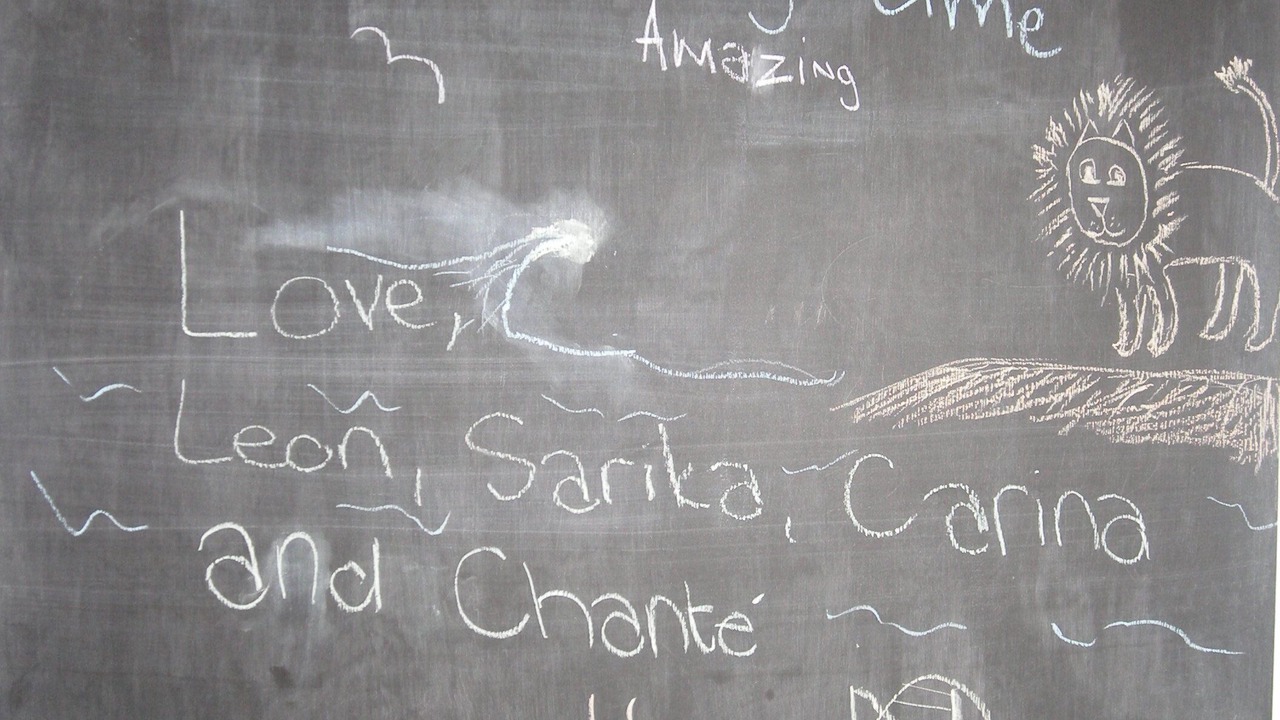 time
Amazing
Love,
Leon, Sarika, Carina
and Chanté